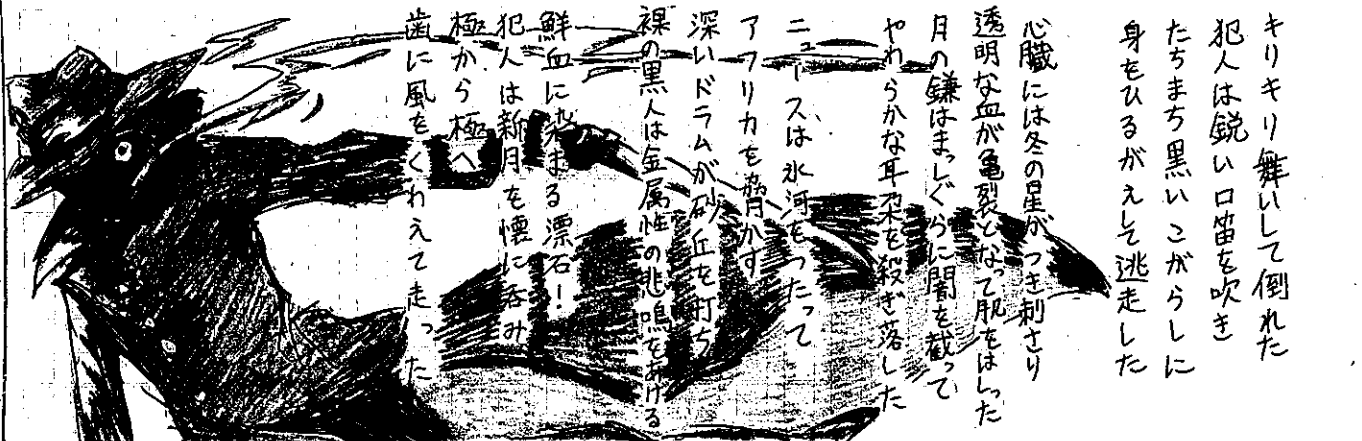 キリキリ舞いして倒れた
犯人は鋭い口笛を吹き
たちまち黒いこがらしに
身をひるがえして逃走した
心臓には冬の星がつき刺さり
透明な血が亀裂となって肌をはしった
月の鎌はまっしぐらに闇を截って
やわらかな耳朶を殺ぎ落した
ニュースは氷河をつたって
アフリカを脅かす
深いドラムが砂丘を打ち
裸の黒人は金属性の悲鳴をあげる
鮮血に染まる漂石!
犯人は新月を懐に呑み
極から極へ
歯に風をくわえて走った